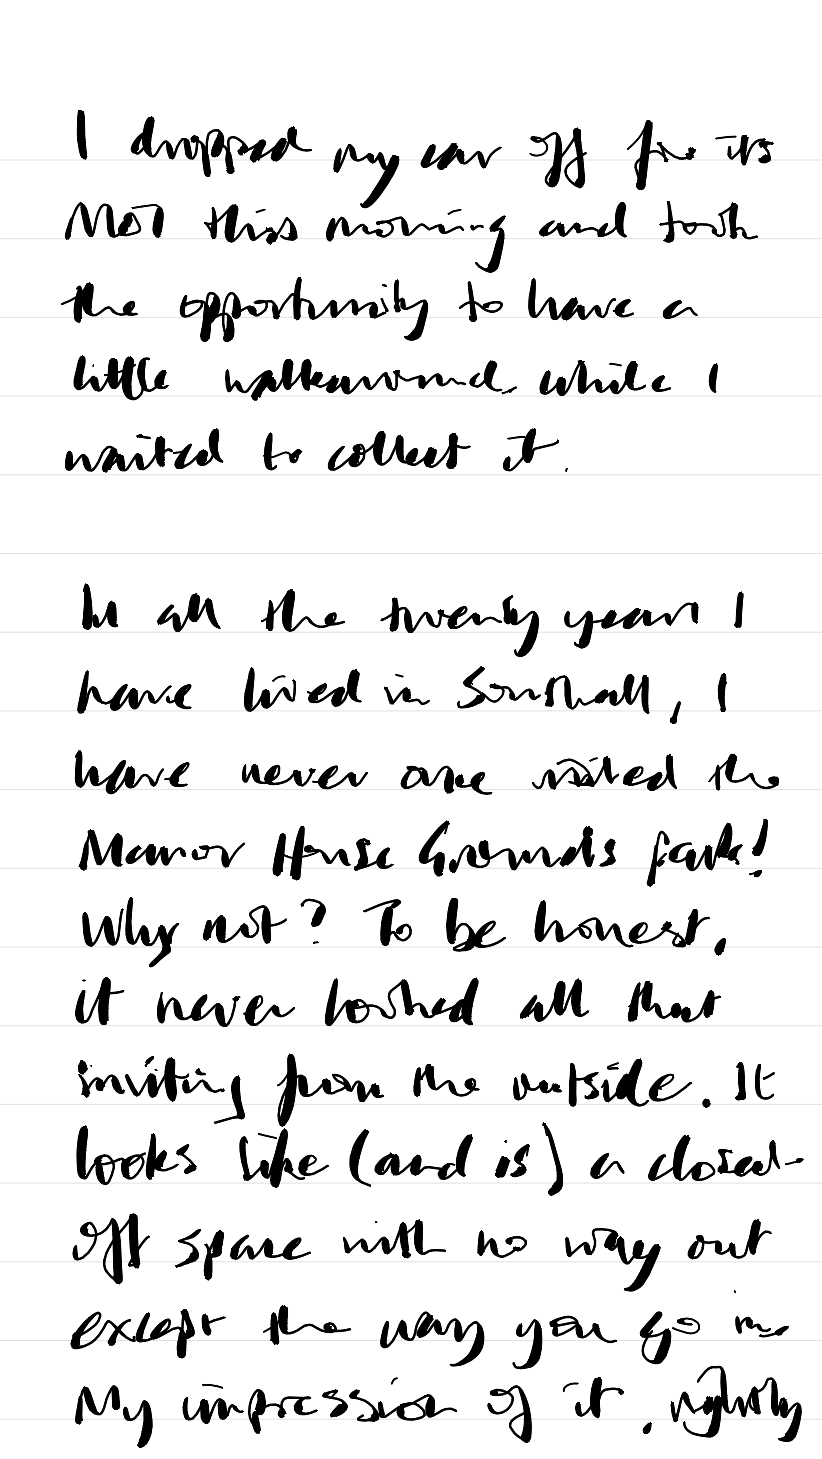 I dropped my car off for its
MOT this morning and took
the opportunity to have a
little walkaround while I
waited to collect it.
In all the twenty years I
have lived in Southall, I
have never once visited the
Manor House Grounds park!
Why not? To be honest,
it never looked all that
inviting from the outside. It
looks like (and is) a closed-
off space with no way out
except the way you go in.
My impression of it, rightly